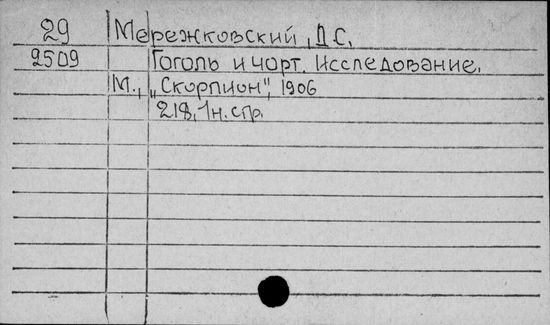 29 Мережковский, Д.С.
2509 Гоголь и чорт. Исследование.
М., „Скорпион", 1906
218, 1н. стр.